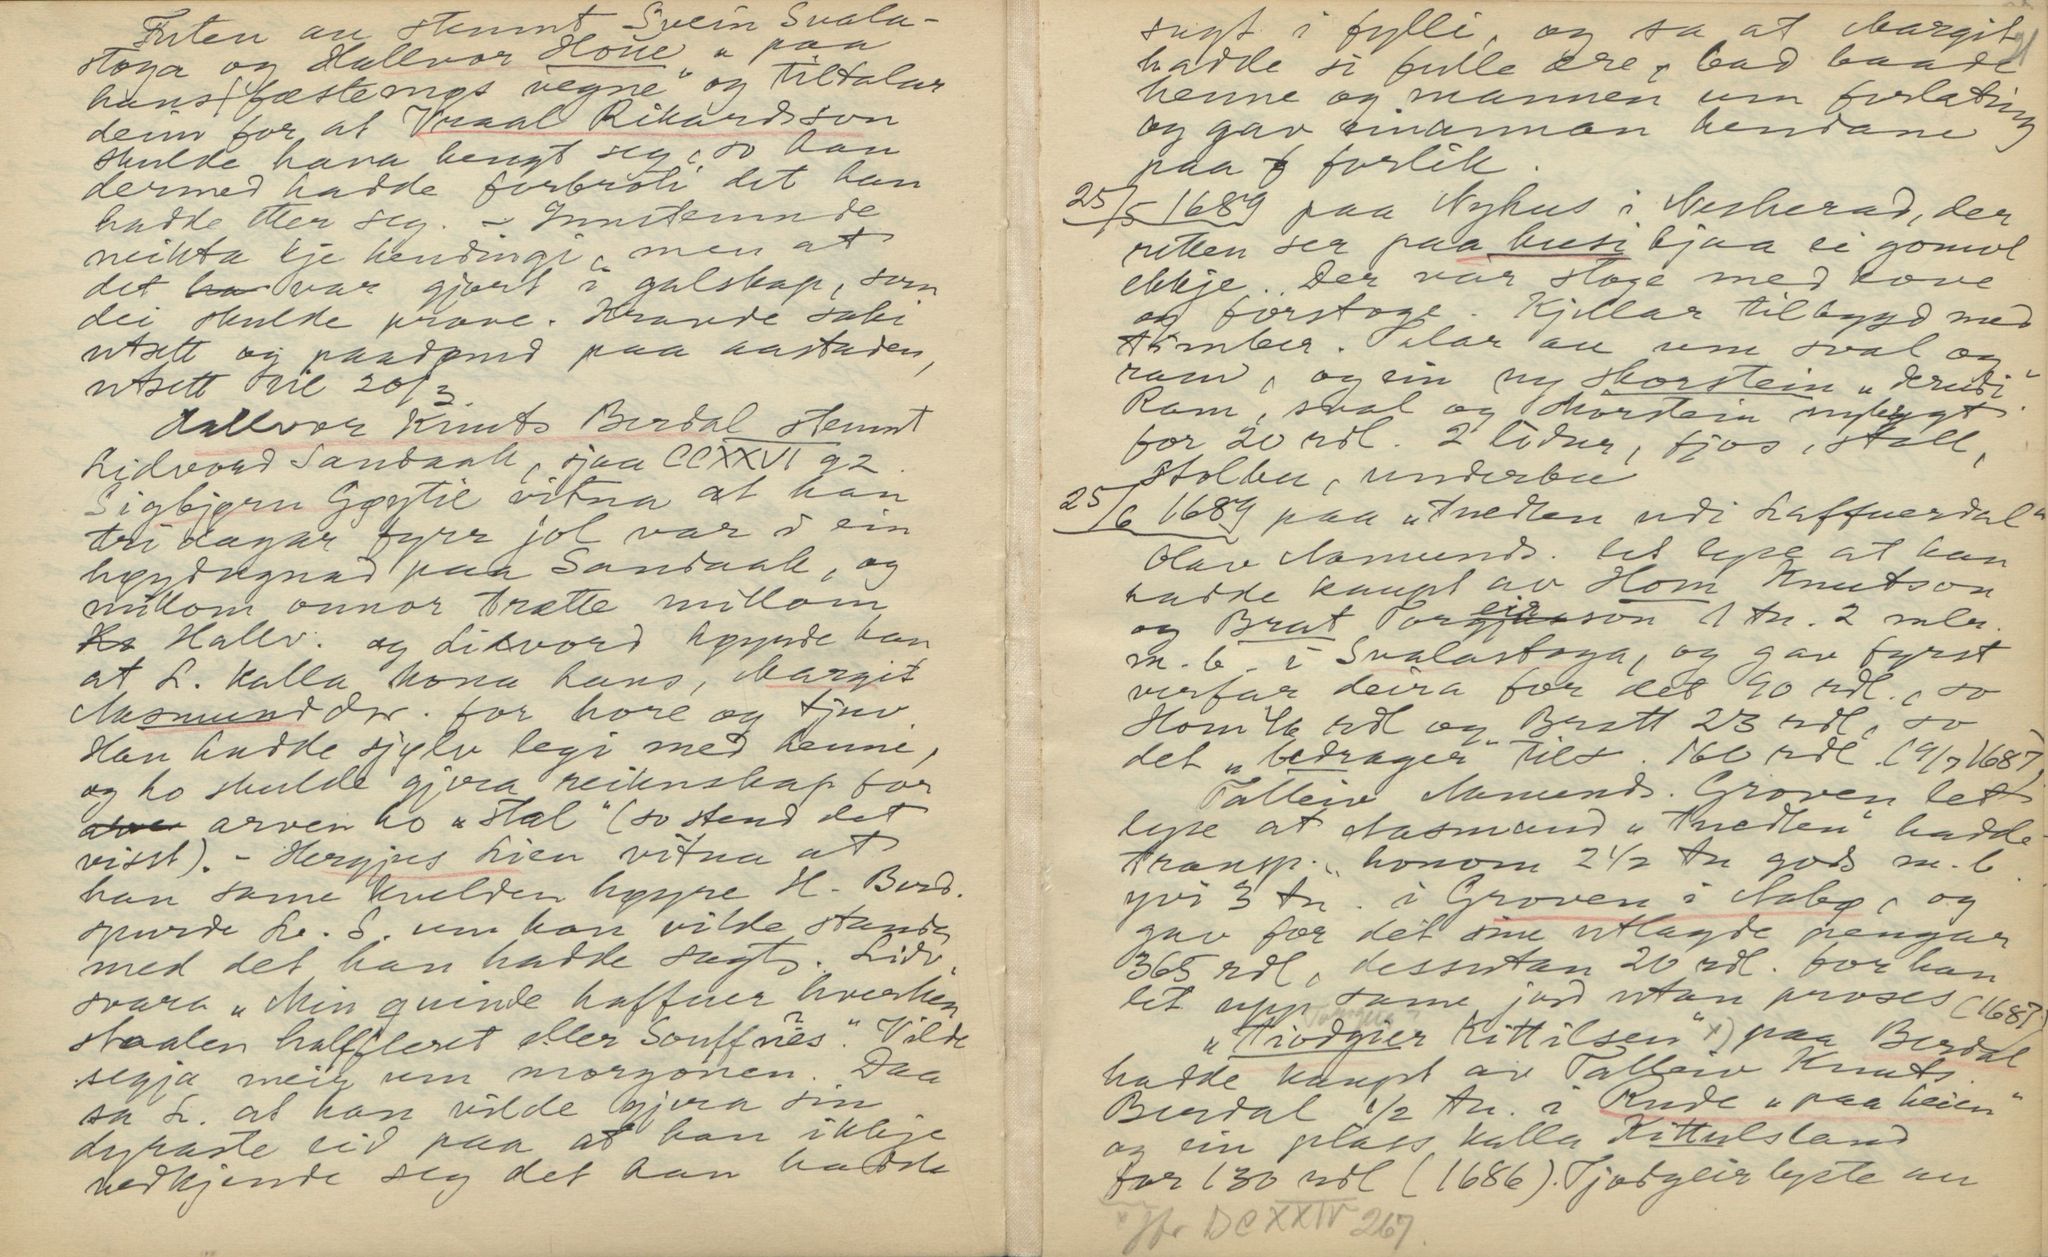 Futen au stemnt Svein Svala-
stoga og Hallvor Hoùe „paa
hans fæstemøs vegne" og tiltalar
deim for at Vraal Rikardsson
skulde hava hengt seg, so han
dermed hadde forbroti det han
hadde etter seg. – Innstemnde
neikta kje hendingi, men at
det var gjort i galskap, som
dei skulde prove. Kravde saki
utsett og paadømd paa aastaden,
utsett til 20/3.
Hallvor Knuts Berdal stemnt
Lidvord Sandaak, sjaa CCXXVI 92.
Sigbjørn Gøytil vitna at han
tri dagar fyrr jol var i ein
høgdognad paa Sandaak, og
millom onnor trætte millom
Hallv. og Lidvord høyrde han
at L. kalla kona hans, Margit
Aasmundsdtr. for hore og tjuv.
Han hadde sjølv legi med henni,
og ho skulde gjera reiknskap for
arven ho „stal" (so stend det
visst). – Hergjus Lien vitna at
han same kvelden høyre H. Berd.
spurde L. S. um han vilde standa
med det han hadde sagt. Lidv.
svara „Min quinde haffuer huerken
staalen halffleret eller Souffnes". Vilde
segja meir um morgonen. Daa
sa L. at han vilde gjera sin
dyraste eid paa at han ikkje
vedkjende seg det han hadde
sagt i fylli, og sa at Margit
hadde si fulle ære, bad baade
henne og mannen um forlating
og gav einannan hendane
paa forlik.
25/5 1689 paa Nyhus i Nesherad, der
retten ser paa husi hjaa ei gomol
ekkje. Der var stoge med kove
og forstoge. Kjellar tilbygd med
timber. Talar au um sval og
ram, og ein ny skorstein „derudi".
Ram, sval og skorstein nybygt
for 20 rdl. 2 lødur, fjos, stall,
stolbu, underbu
25/6 1689 paa „Tuedten udi Laffuerdal"
Olav Aamunds. let lysa at han
hadde kaupt av Hom Knutson
og Brat Torgeirson 1 tn. 2 mlr.
m. b. i Svalastoga, og gav fyrst
verfar deira for det 90 rdl., so
Hom 46 rdl og Bratt 23 rdl, so
det „bedrager" tils. 160 rdl. (9/7 1687)
Talleiv Aamunds. Groven let
lysa at Aasmund „Tuedten" hadde
transp. honom 2 1/2 tn gods m. b.
yvi 3 tn. i Groven i Aabø, og
gav for det sine utlagde pengar
365 rdl, dessutan 20 rdl. for han
let upp same jord utan proses (1687)
„Tiodgier Kittilsen" x) paa Berdal
hadde kaupt av Talleiv Knuts.
Berdal 1/2 tn. i Rude „paa heien"
og ein plass kalla Kittulsland
for 130 rdl (1686). Tjodgeir lyste au
x Jfr DCXXIV 267.